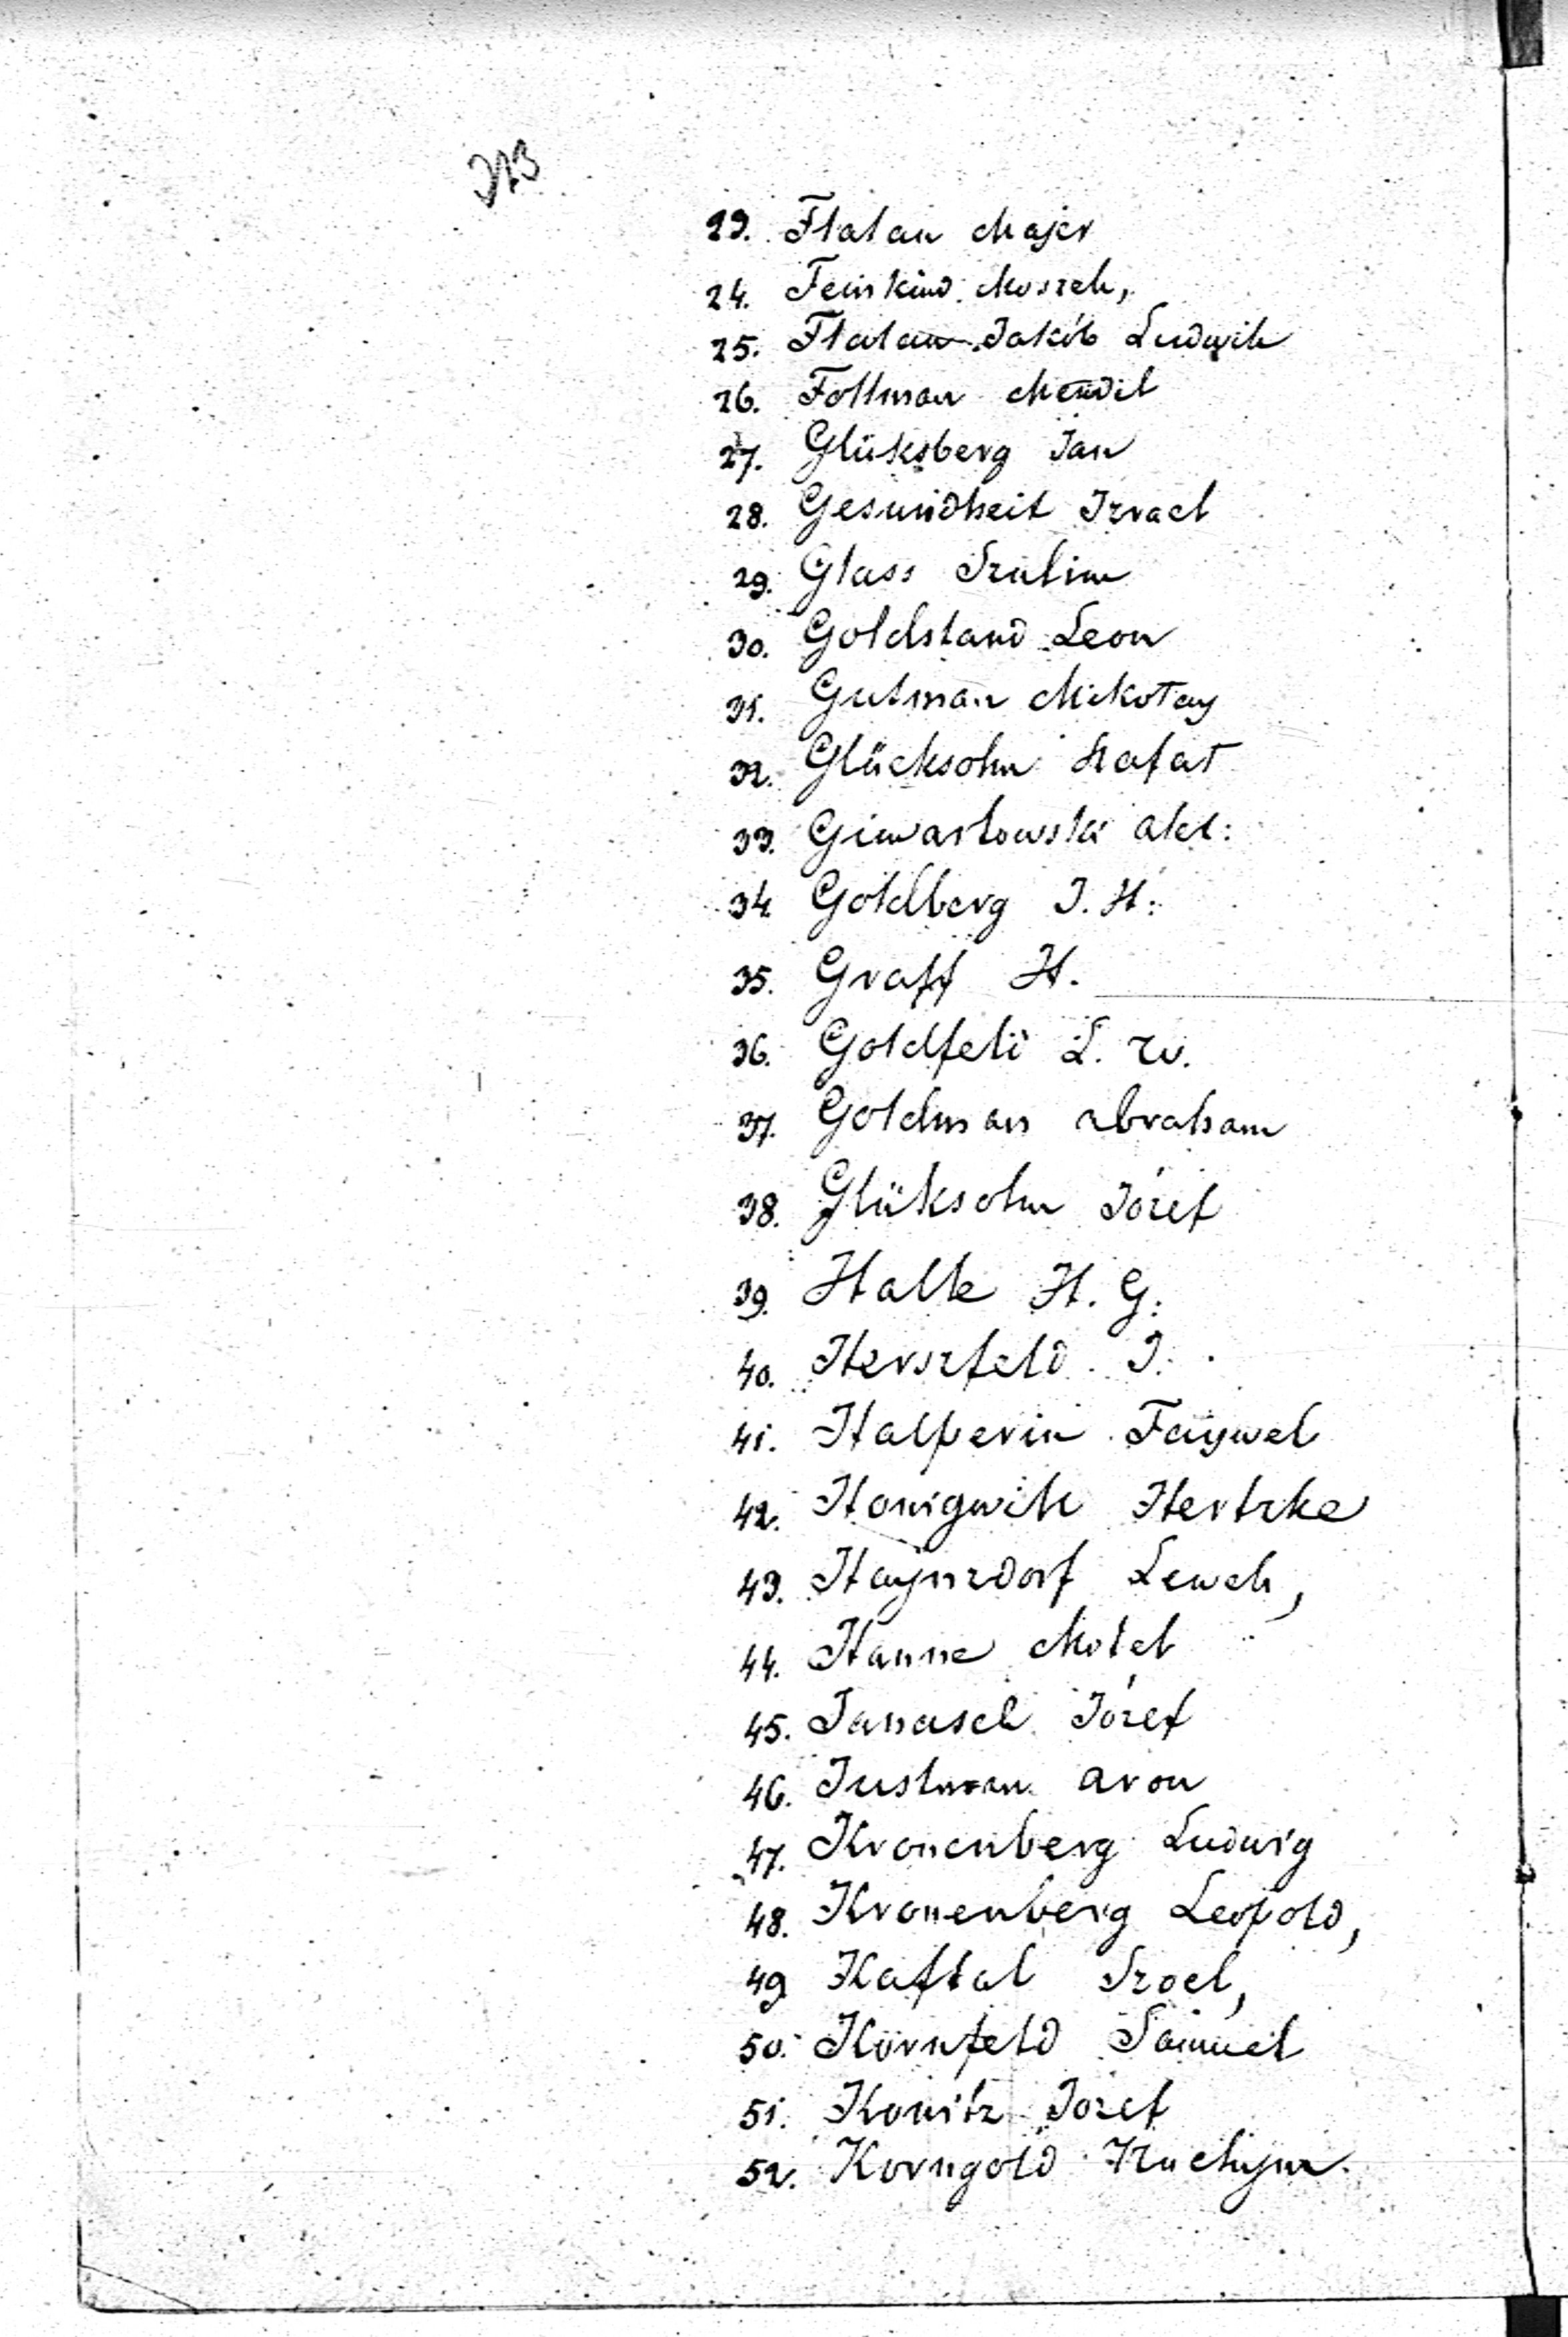 313
23. Flatau Majer
24. Feinkind Moszek,
25. Flatau Jakób Ludwik
26. Follman Mendel
27. Glüksberg Jan
28. Gesundheit Izrael
29. Glass Szulim
30. Goldstand Leon
31. Gutman Mikołay
32. Glücksohn Rafał
33. Giwartowski Alex:
34. Goldberg J. H:
35. Graff H.
36. Goldfeld L. W.
37. Goldman Abraham
38. Glüksohn Józef
39. Halle H. G:
40. Herszfeld J.
41. Halperin Faywel
42. Honigwill Hertzke
43. Haynzdorf Lewek,
44. Hanne Motel
45. Janasch Józef
46. Justman Aron
47. Kronenberg Ludwig
48. Kronenberg Leopold,
49 Kaftal Szoel,
50. Kornfeld Samuel
51. Konitz Jozef
52. Korngold